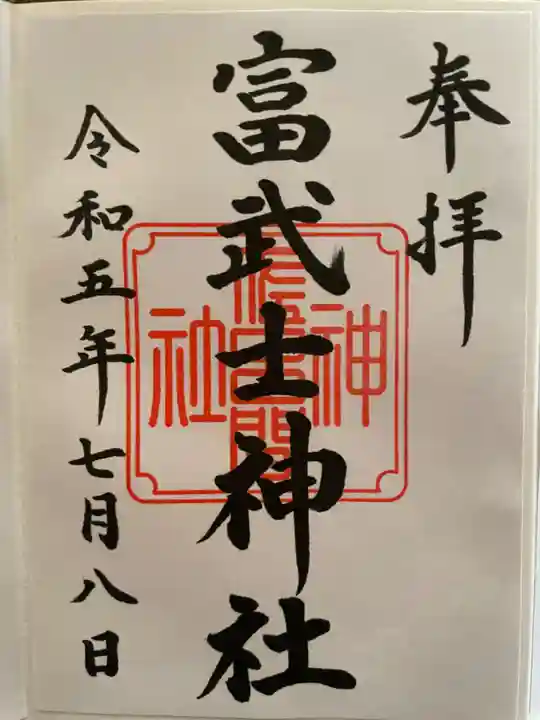 奉拝
富武士神社
令和五年七月八日
神
社